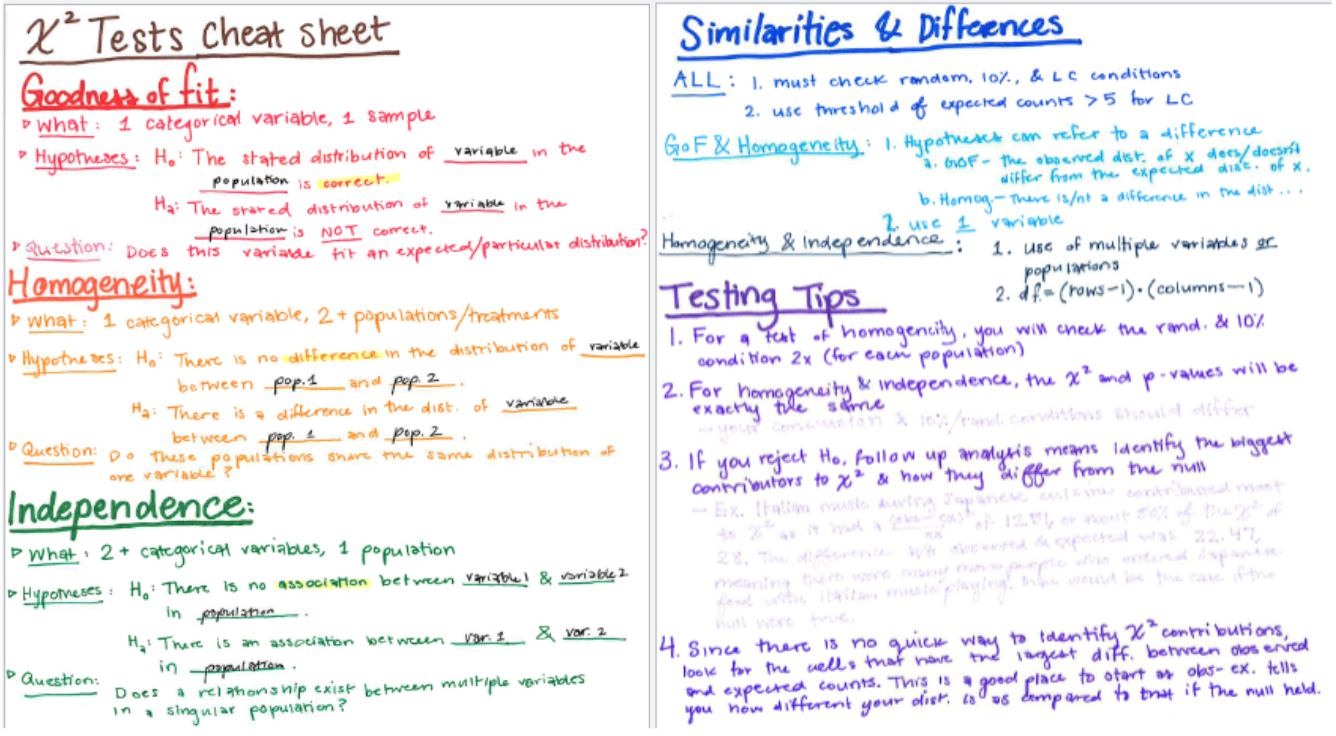 χ² Tests Cheat sheet
Goodness of fit:
▹ What: 1 categorical variable, 1 sample
▹ Hypotheses: H₀: The stated distribution of variable in the
population is correct.
Hₐ: The stated distribution of variable in the
population is NOT correct.
▹ Question: Does this variable fit an expected/particular distribution?
Homogeneity:
▹ What: 1 categorical variable, 2+ populations/treatments
▹ Hypotheses: H₀: There is no difference in the distribution of variable
between pop. 1 and pop. 2.
Hₐ: There is a difference in the dist. of variable
between pop. 1 and pop. 2.
▹ Question: Do these populations share the same distribution of
one variable?
Independence:
▹ What: 2+ categorical variables, 1 population
▹ Hypotheses: H₀: There is no association between variable 1 & variable 2
in population.
Hₐ: There is an association between var. 1 & var. 2
in population.
▹ Question: Does a relationship exist between multiple variables
in a singular population?
Similarities & Differences
ALL: 1. must check random, 10%, & LC conditions
2. use threshold of expected counts >5 for LC
GoF & Homogeneity: 1. Hypotheses can refer to a difference
a. GOF - the observed dist. of x does/doesn't
differ from the expected dist. of x.
b. Homog. - There is/nt a difference in the dist...
2. use 1 variable
Homogeneity & independence: 1. use of multiple variables or
populations
2. df. = (rows-1)·(columns-1)
Testing Tips
1. For a test of homogeneity, you will check the rand. & 10%
condition 2x (for each population)
2. For homogeneity & independence, the χ² and p-values will be
exactly the same
- your conclusion & 10%/rand conditions should differ
3. If you reject H₀, follow up analysis means identify the biggest
contributors to χ² & how they differ from the null
- Ex. Italian music during Japanese cuisine contributed most
to χ² as it had a of or about 50% of the χ² of
28. The difference b/t observed & expected was 22.47,
meaning there were many more people who ordered Japanese
food with Italian music playing than would be the case if the
null were true.
4. Since there is no quick way to identify χ² contributions,
look for the cells that have the largest diff. between observed
and expected counts. This is a good place to start as obs-ex. tells
you how different your dist. is as compared to that if the null held.